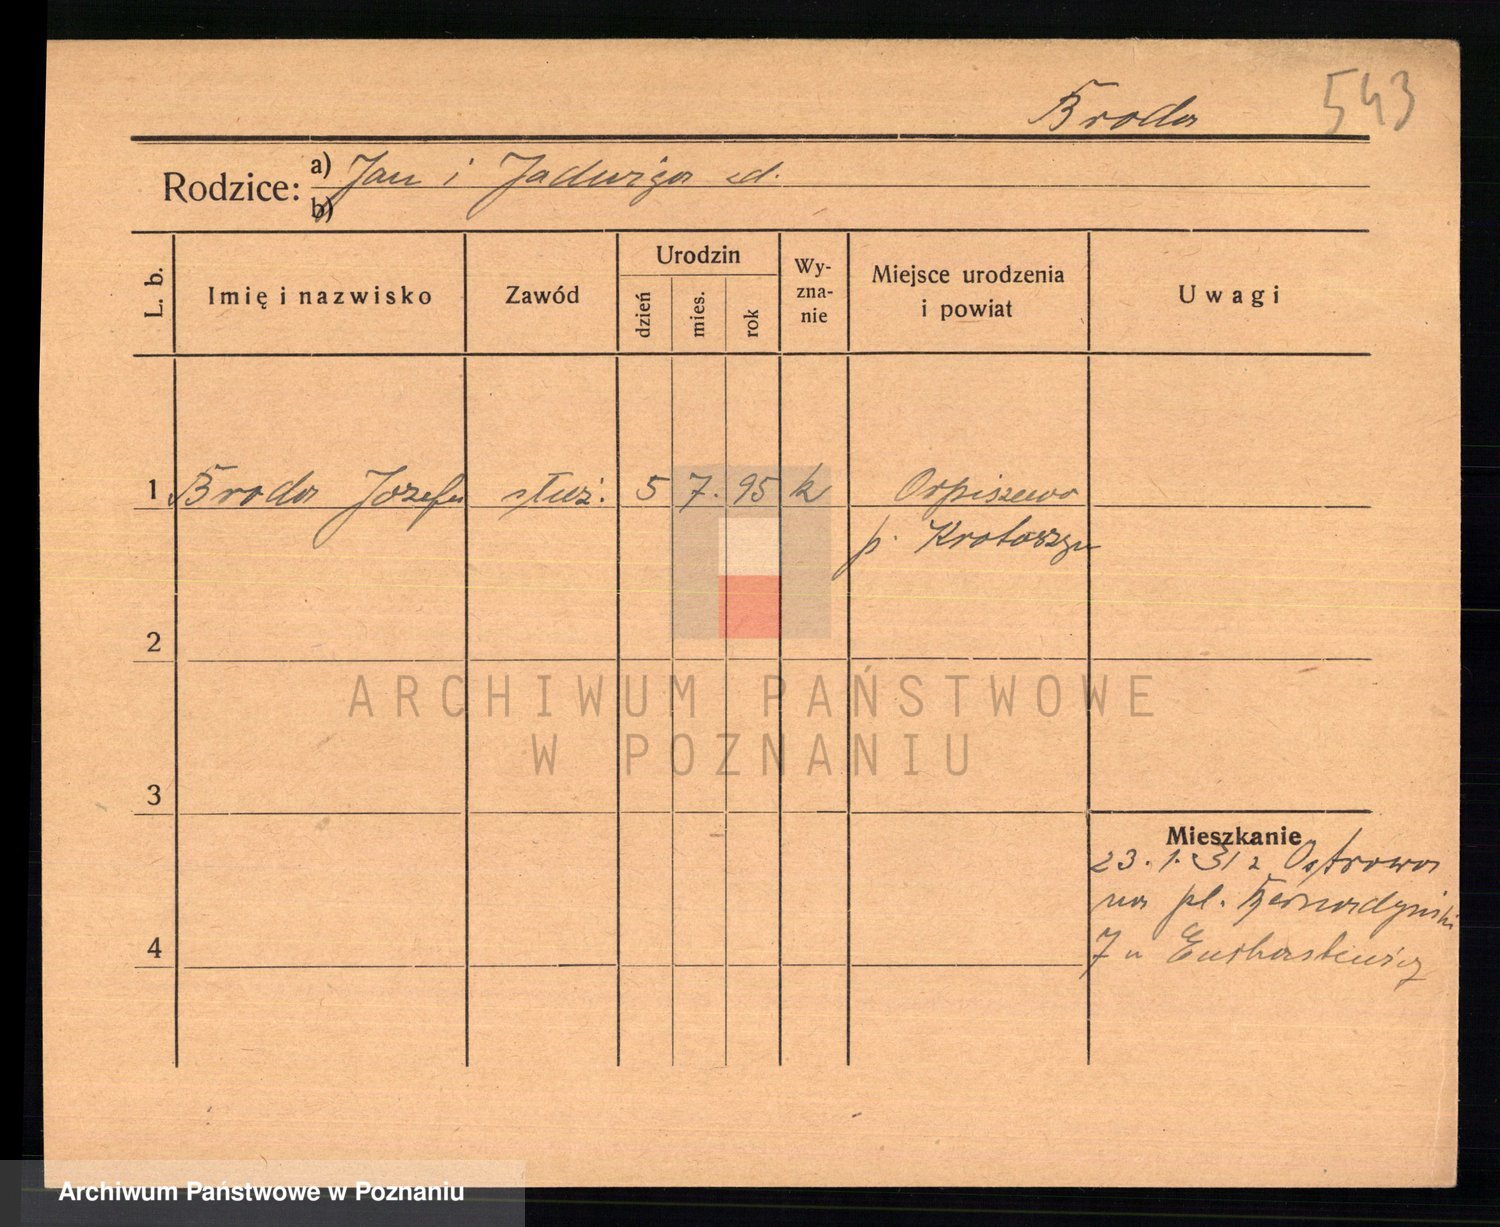 Broda 543
Rodzice: a) Jan i Jadwiga zd.
b)
L. b. Imię i nazwisko Zawód Urodzin dzień mies. rok Wyznanie Miejsce urodzenia i powiat Uwagi
1 Broda Józefa służ. 5 7. 95 k Orpiszewo
p. Krotoszyn
2
ARCHIWUM PAŃSTWOWE
W POZNANIU
3
Mieszkanie
23.1.31 z Ostrowa
na pl. Bernardyński
4
7 u
Archiwum Państwowe w Poznaniu